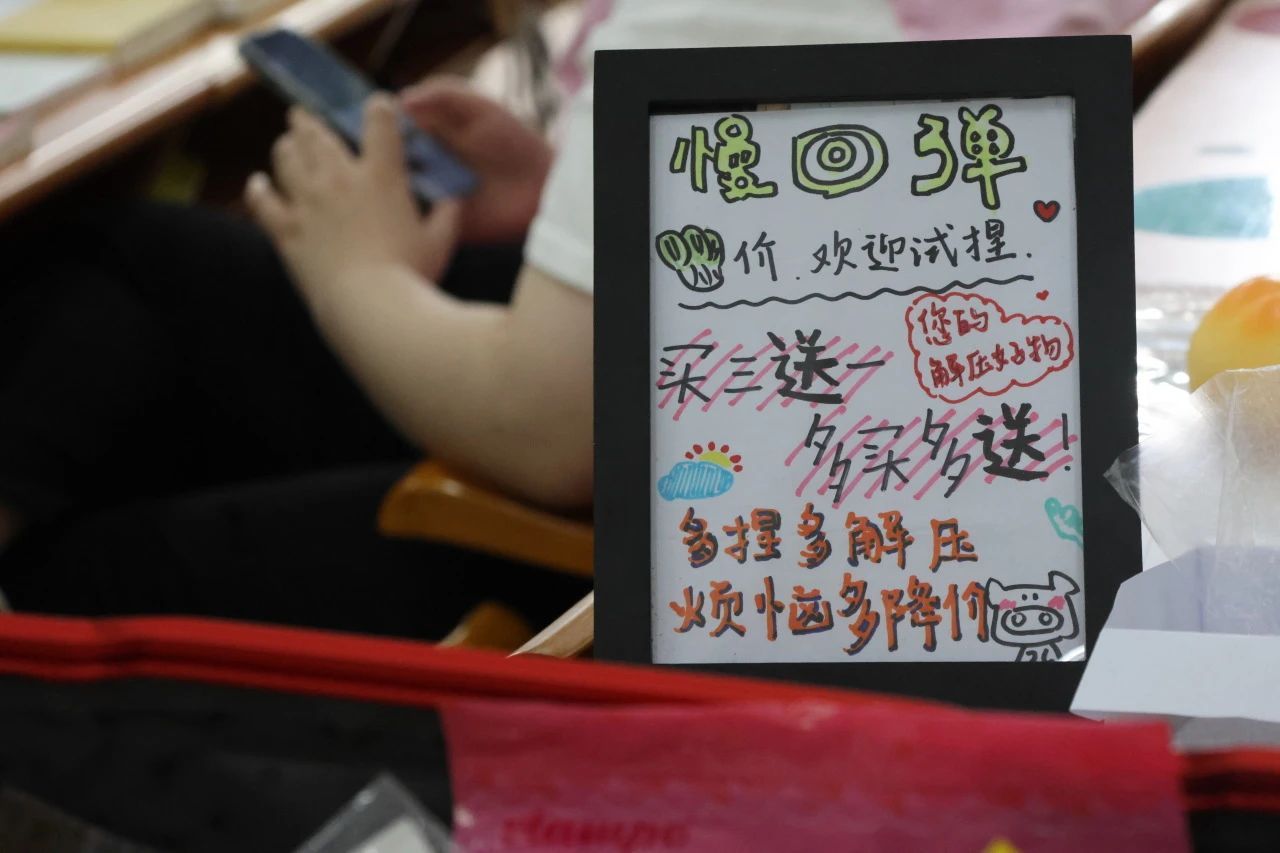 慢回弹
价.欢迎试捏.
您的
解压好物
买三送一
多买多送!
多捏多解压
烦恼多降价